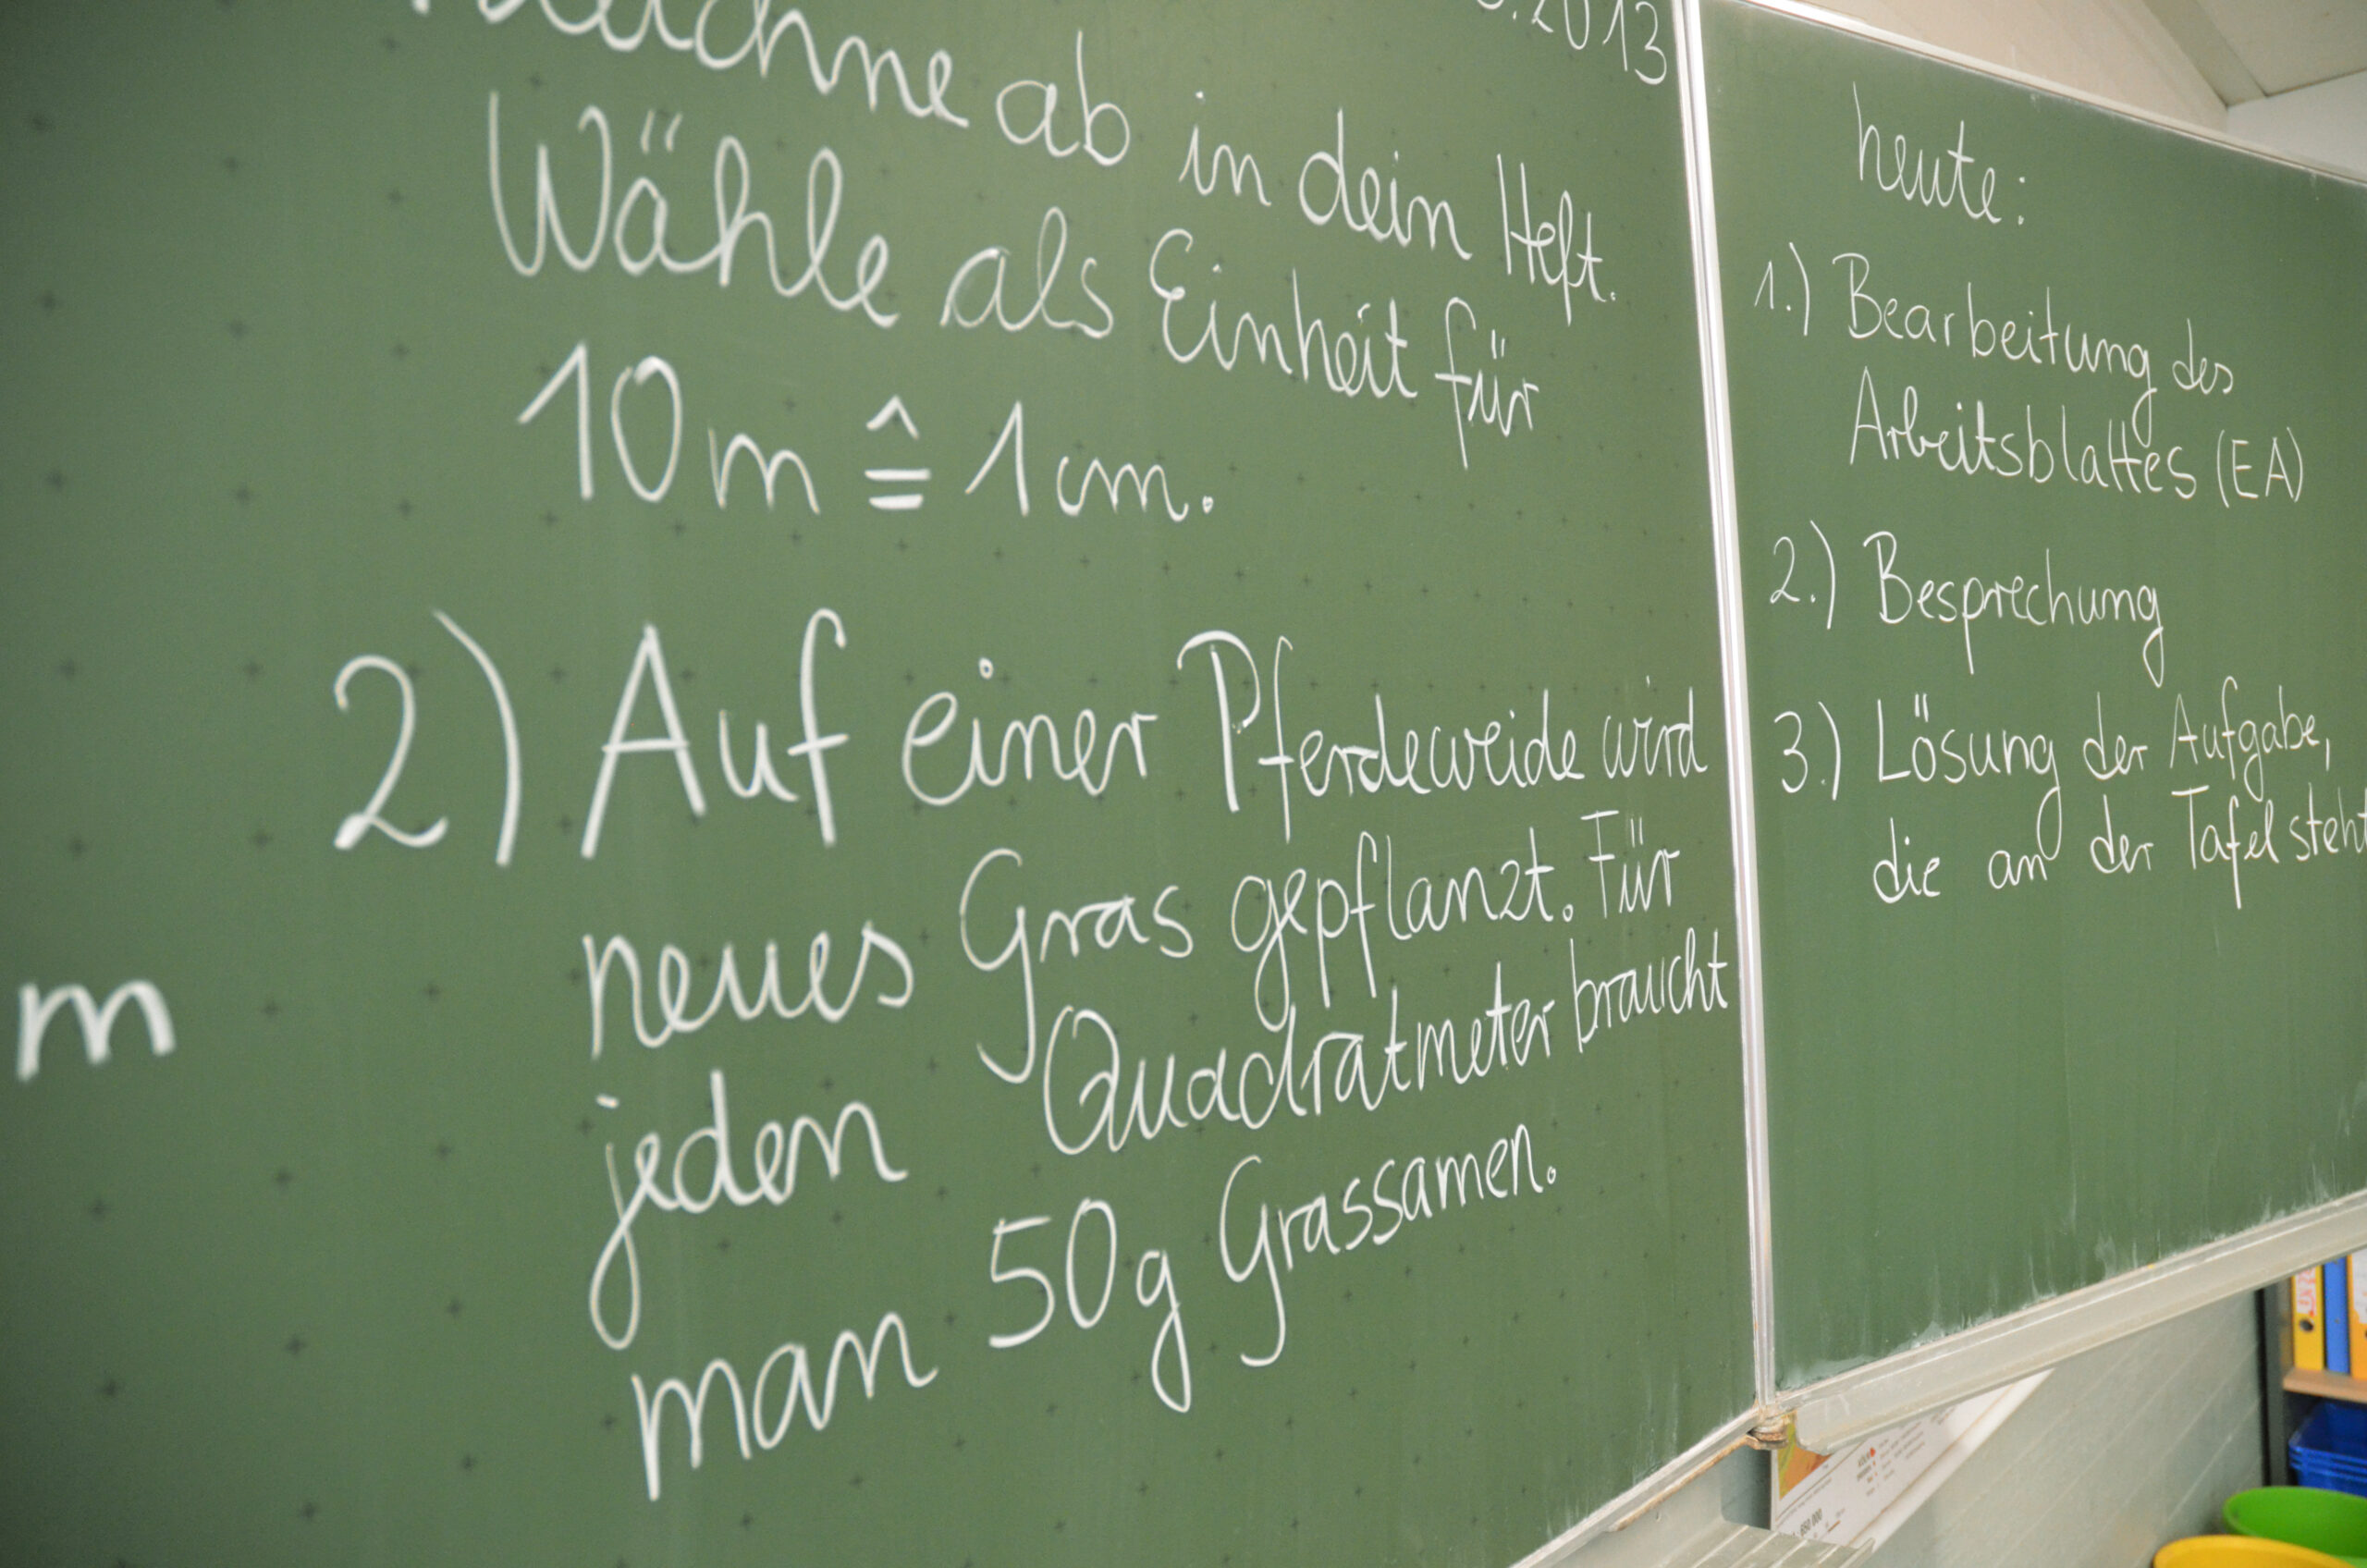 ab in dein Heft.
Wähle als Einheit für
10 m ≙ 1 cm.
2) Auf einer Pferdeweide wird
neues Gras gepflanzt. Für
jeden Quadratmeter braucht
man 50 g Grassamen.
m
.2013
heute:
1.) Bearbeitung des
Arbeitsblattes (EA)
2.) Besprechung
3.) Lösung der Aufgabe,
die an der Tafel steht